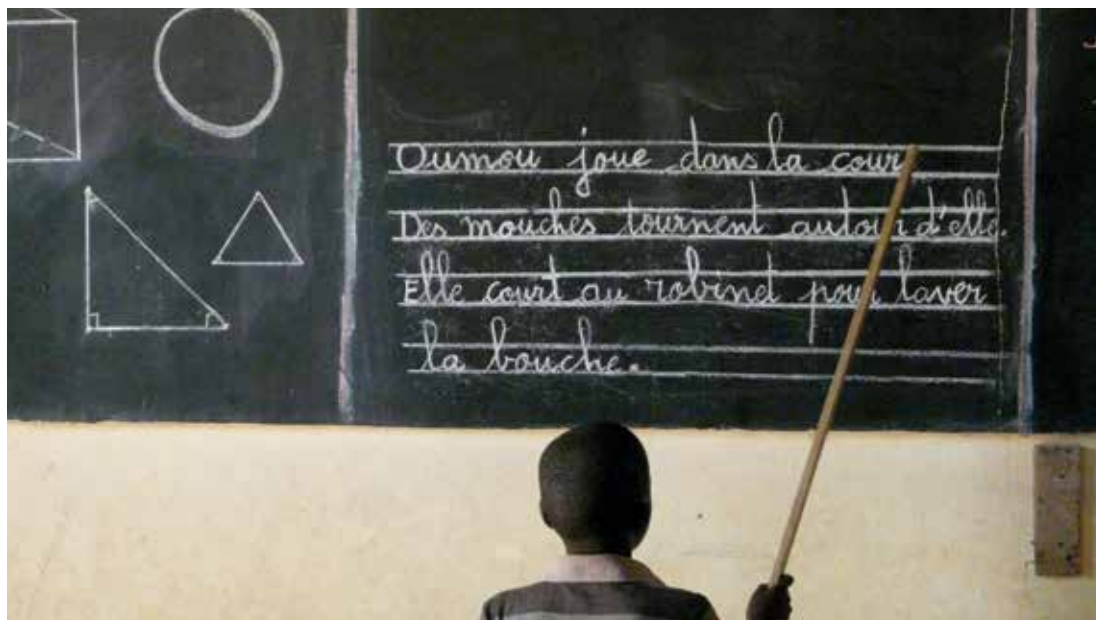 Oumou joue dans la cour
Des mouches tournent autour d'elle.
Elle court au robinet pour laver
la bouche.